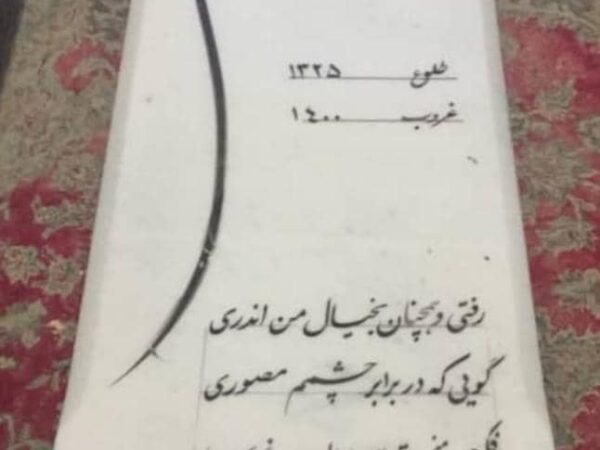 طلوع ۱۳۲۵
غروب ۱۴۰۰
رفتی و همچنان بخیال من اندری
گویی که در برابر چشمم مصوری